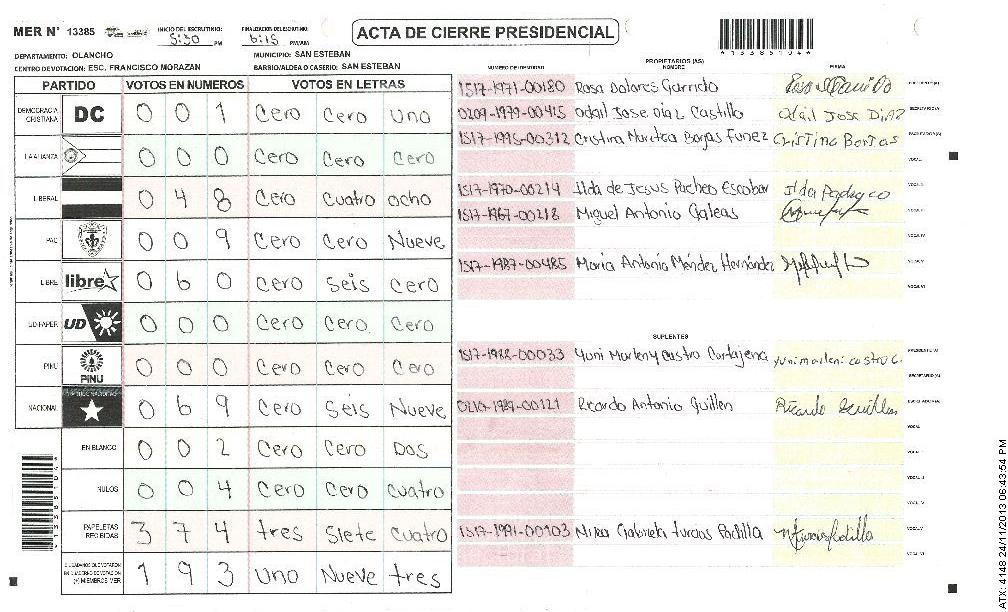 MER N° 13385 INICIO DEL ESCRUTINIO: 5:30 PM FINALIZACION DEL ESCRUTINIO: 6:15 PM/AM
ACTA DE CIERRE PRESIDENCIAL
*1338510 4*
DEPARTAMENTO: OLANCHO MUNICIPIO: SAN ESTEBAN
CENTRO DE VOTACION: ESC. FRANCISCO MORAZAN BARRIO/ALDEA O CASERIO: SAN ESTEBAN
PARTIDO VOTOS EN NUMEROS VOTOS EN LETRAS
DEMOCRACIA CRISTIANA DC 0 0 1 Cero Cero Uno
LA ALIANZA 0 0 0 Cero Cero Cero
LIBERAL 0 4 8 Cero Cuatro ocho
PAC 0 0 9 Cero Cero Nueve
LIBRE libre 0 6 0 Cero Seis Cero
UD-FAPER UD 0 0 0 Cero Cero Cero
PINU PINU 0 0 0 Cero Cero Cero
NACIONAL 0 6 9 Cero Seis Nueve
EN BLANCO 0 0 2 Cero Cero Dos
NULOS 0 0 4 Cero Cero Cuatro
PAPELETAS RECIBIDAS 3 7 4 tres Siete Cuatro
CIUDADANOS QUE VOTARON EN CUADERNO DE VOTACION (+) MIEMBROS MER 1 9 3 Uno Nueve tres
PROPIETARIOS (AS)
NUMERO DE IDENTIDAD NOMBRE FIRMA
1517-1971-00180 Rosa Dolores Garrido PRESIDENTE(A)
0209-1979-00415 Odail Jose Diaz Castillo Odail Jose Diaz SECRETARIO(A)
1517-1995-00312 Cristina Maritza Borjas Funez Cristina Borjas ESCRUTADOR(A)
VOCAL I
1517-1970-00214 Ilda de Jesus Pacheo Escobar Ilda Pacheco VOCAL II
1517-1967-00218 Miguel Antonio Galeas VOCAL III
VOCAL IV
1517-1987-00485 Maria Antonia Méndez Hernández VOCAL V
VOCAL VI
SUPLENTES
1517-1988-00033 Yuni Marleny Castro Cartajena yuni marleni castro C. PRESIDENTE(A)
SECRETARIO(A)
0210-1989-00121 Ricardo Antonio Guillen Ricardo Guillen ESCRUTADOR(A)
VOCAL I
VOCAL II
VOCAL III
VOCAL IV
1517-1991-00103 Gabriela turcios Padilla VOCAL V
VOCAL VI
ATX: 4148 24/11/2013 06:43:54 PM